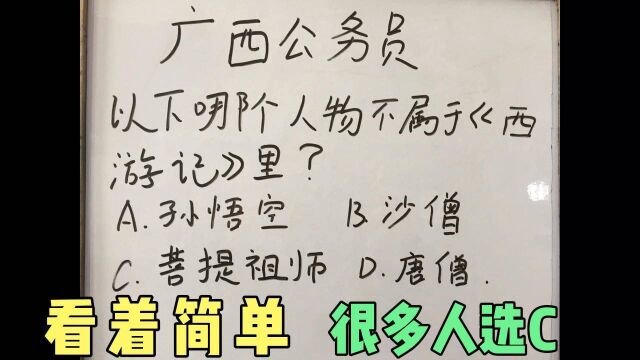 广西公务员
以下哪个人物不属于《西
游记》里?
A.孙悟空 B.沙僧
C.菩提祖师 D.唐僧.
看着简单 很多人选C